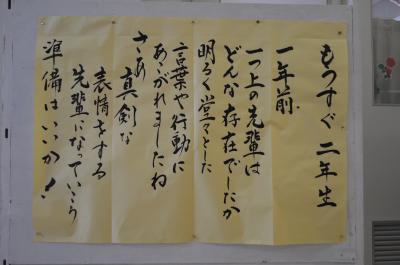 もうすぐ二年生
一年前
一つ上の先輩は
どんな存在でしたか
明るく堂々とした
言葉や行動に
あこがれましたね
さあ
真剣な
表情をする
先輩になっていこう
準備はいいか!